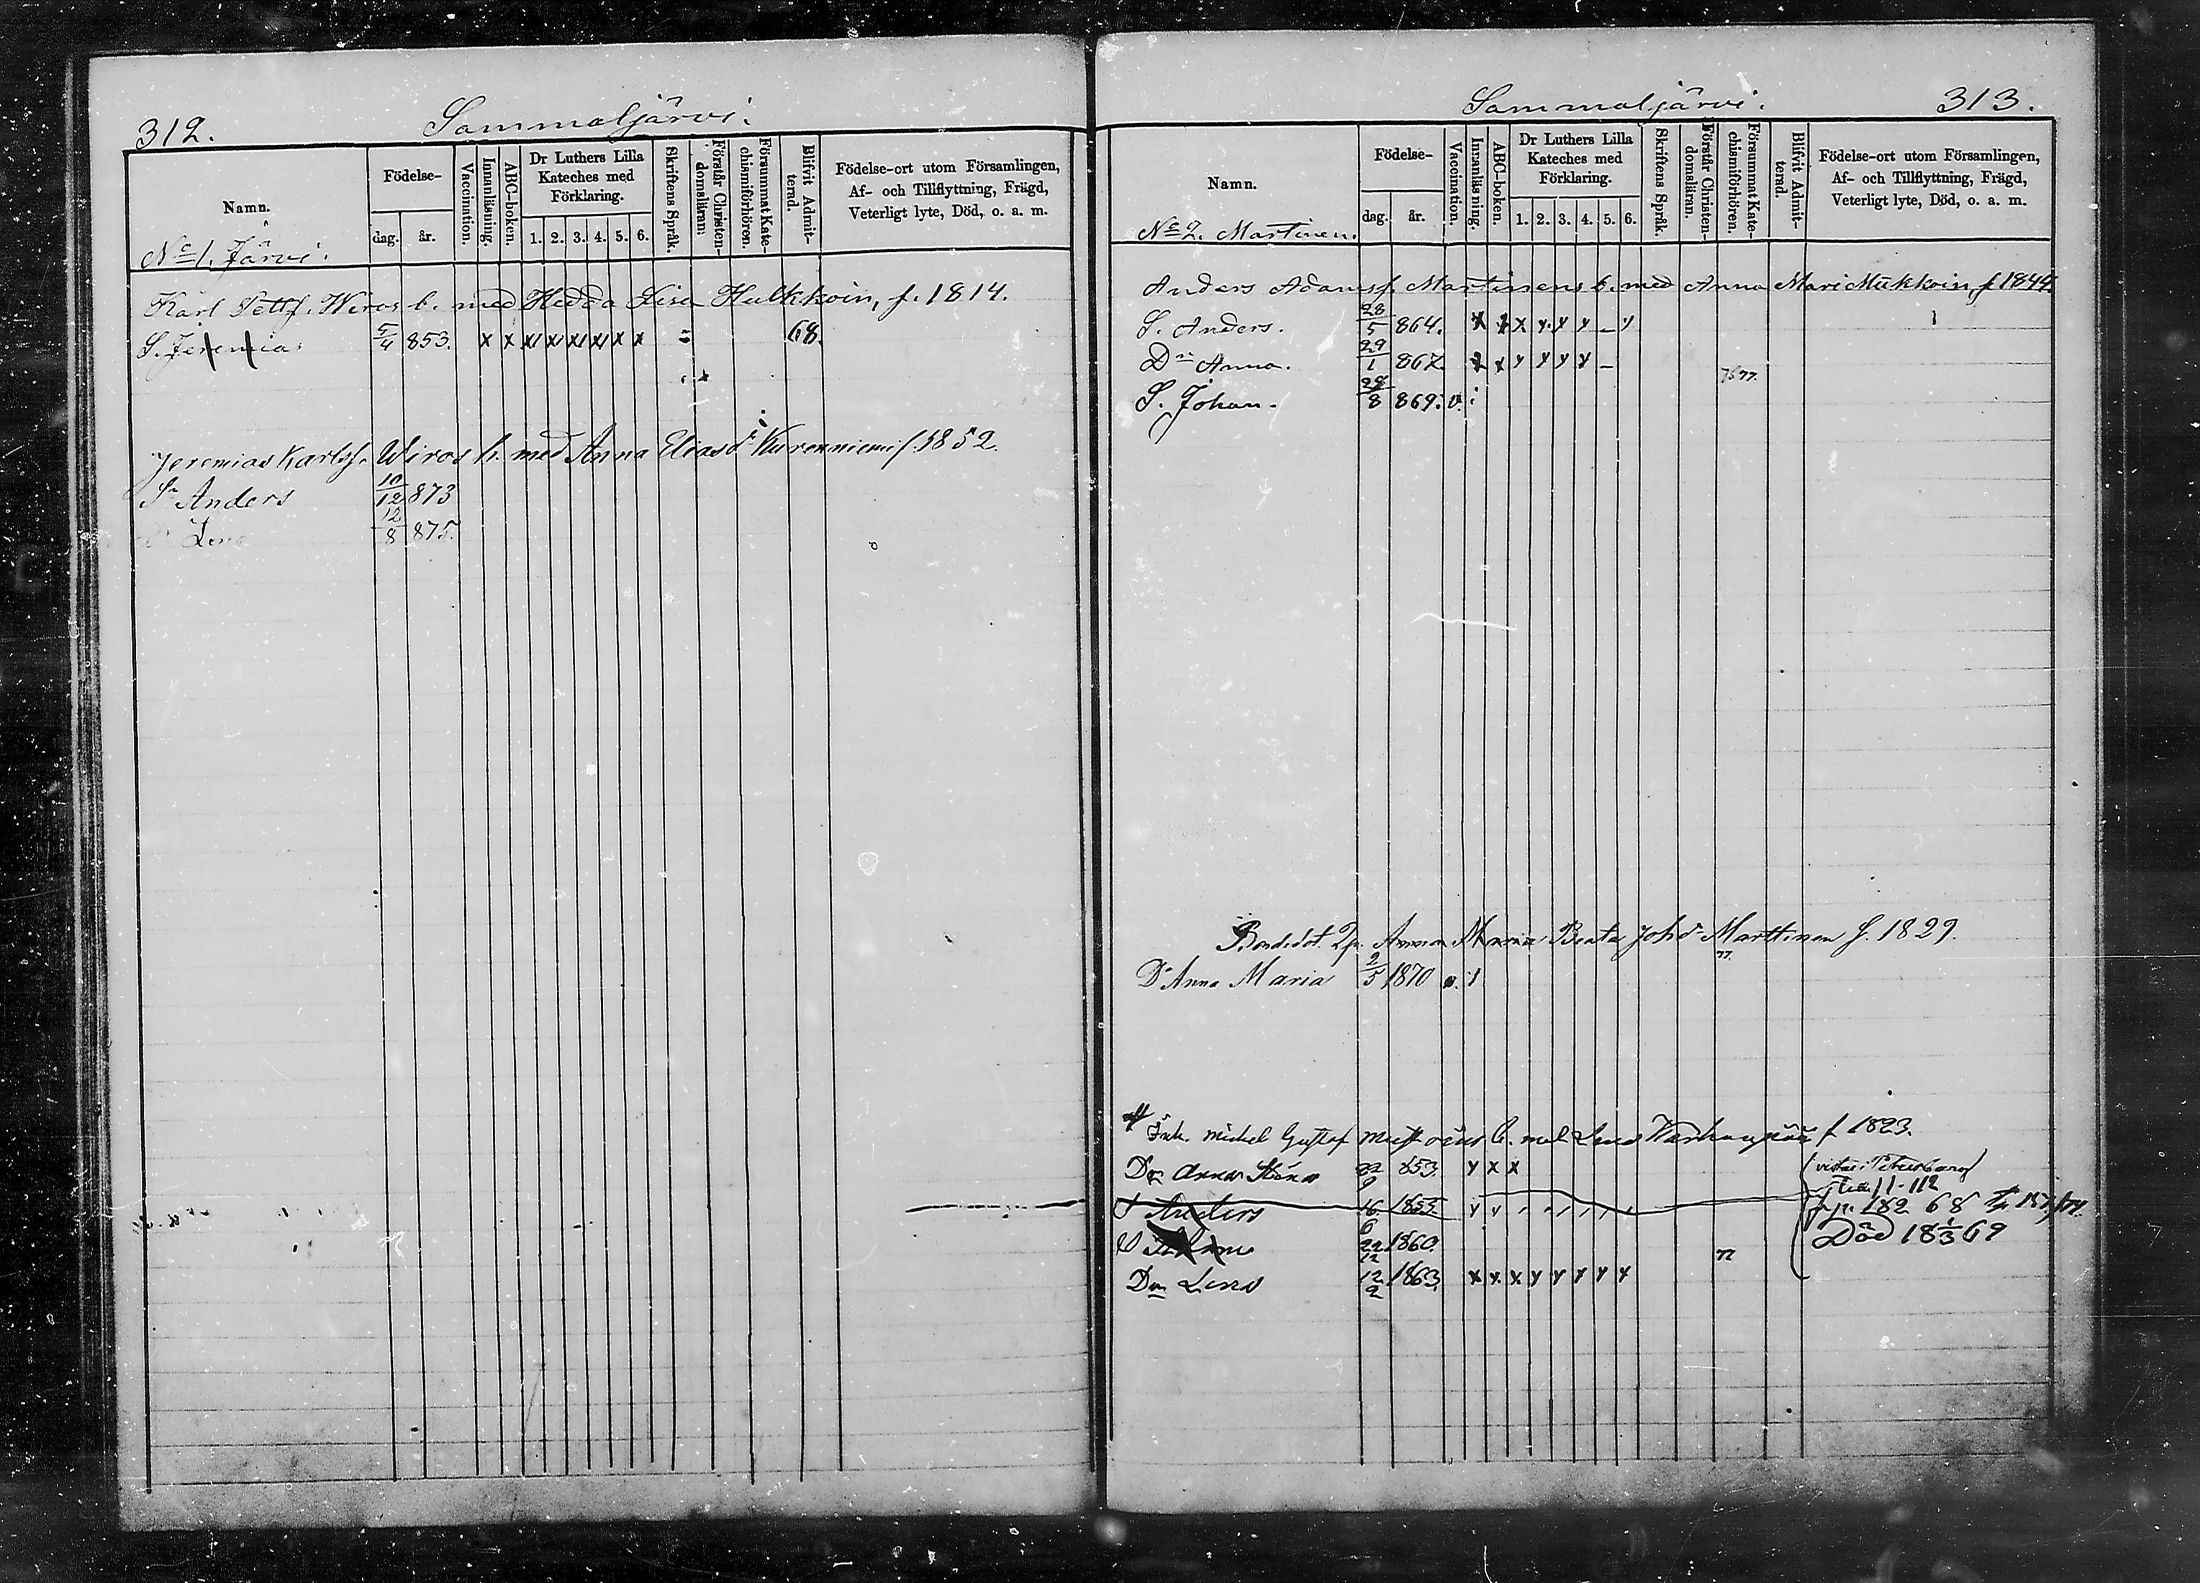 312.
Sammaljärvi.
Namn.
Födelse-
dag.
år.
Vaccination.
Innanläsning.
ABC-boken.
Dr Luthers Lilla
Kateches med
Förklaring.
1. 2. 3. 4. 5. 6.
Skriftens Språk.
Förstår Christen-
domsläran.
Försummat Kate-
chismiförhören.
Blifvit Admit-
terad.
Födelse-ort utom Församlingen,
Af- och Tillflyttning, Frägd,
Veterligt lyte, Död, o. a. m.
No 1. Järvi.
Karl Pettf. Wiros b. med Hedda Lisa Hulkkoin, f. 1814.
S. Jeremias 5/4 853. x x x x x x x x 68.
Jeremias Karlsf. Wiros h. med Anna Eliasdr Kurenniemi f. 1852.
Sn Anders 10/12 873
Lena 12/8 875.
Sammaljärvi.
313.
Namn.
Födelse-
dag.
år.
Vaccination.
Innanläsning.
ABC-boken.
Dr Luthers Lilla
Kateches med
Förklaring.
1. 2. 3. 4. 5. 6.
Skriftens Språk.
Förstår Christen-
domsläran.
Försummat Kate-
chismiförhören.
Blifvit Admit-
terad.
Födelse-ort utom Församlingen,
Af- och Tillflyttning, Frägd,
Veterligt lyte, Död, o. a. m.
No 2. Martinen.
Anders Adamsf. Martinens b. med Anna Mari Mukkoin, f 1844.
S. Anders. 28/5 864.
Dr Anna. 29/1 867.
S. Johan. 28/8 869. v.
Anna Maria Beata Johdr Marttinen f. 1829.
77.
Dr Anna Maria 2/5 1870 v.
Enk. Michel Gustaf b. med Lena f 1823.
Dr Anna Stina 22/9 853. y x x
vistas i Petersburg
S Anders 16/6 1855.
22/12 1860.
Död 18 1/3 69
77
Dr Lena 12/2 1863. x x x y y y y y